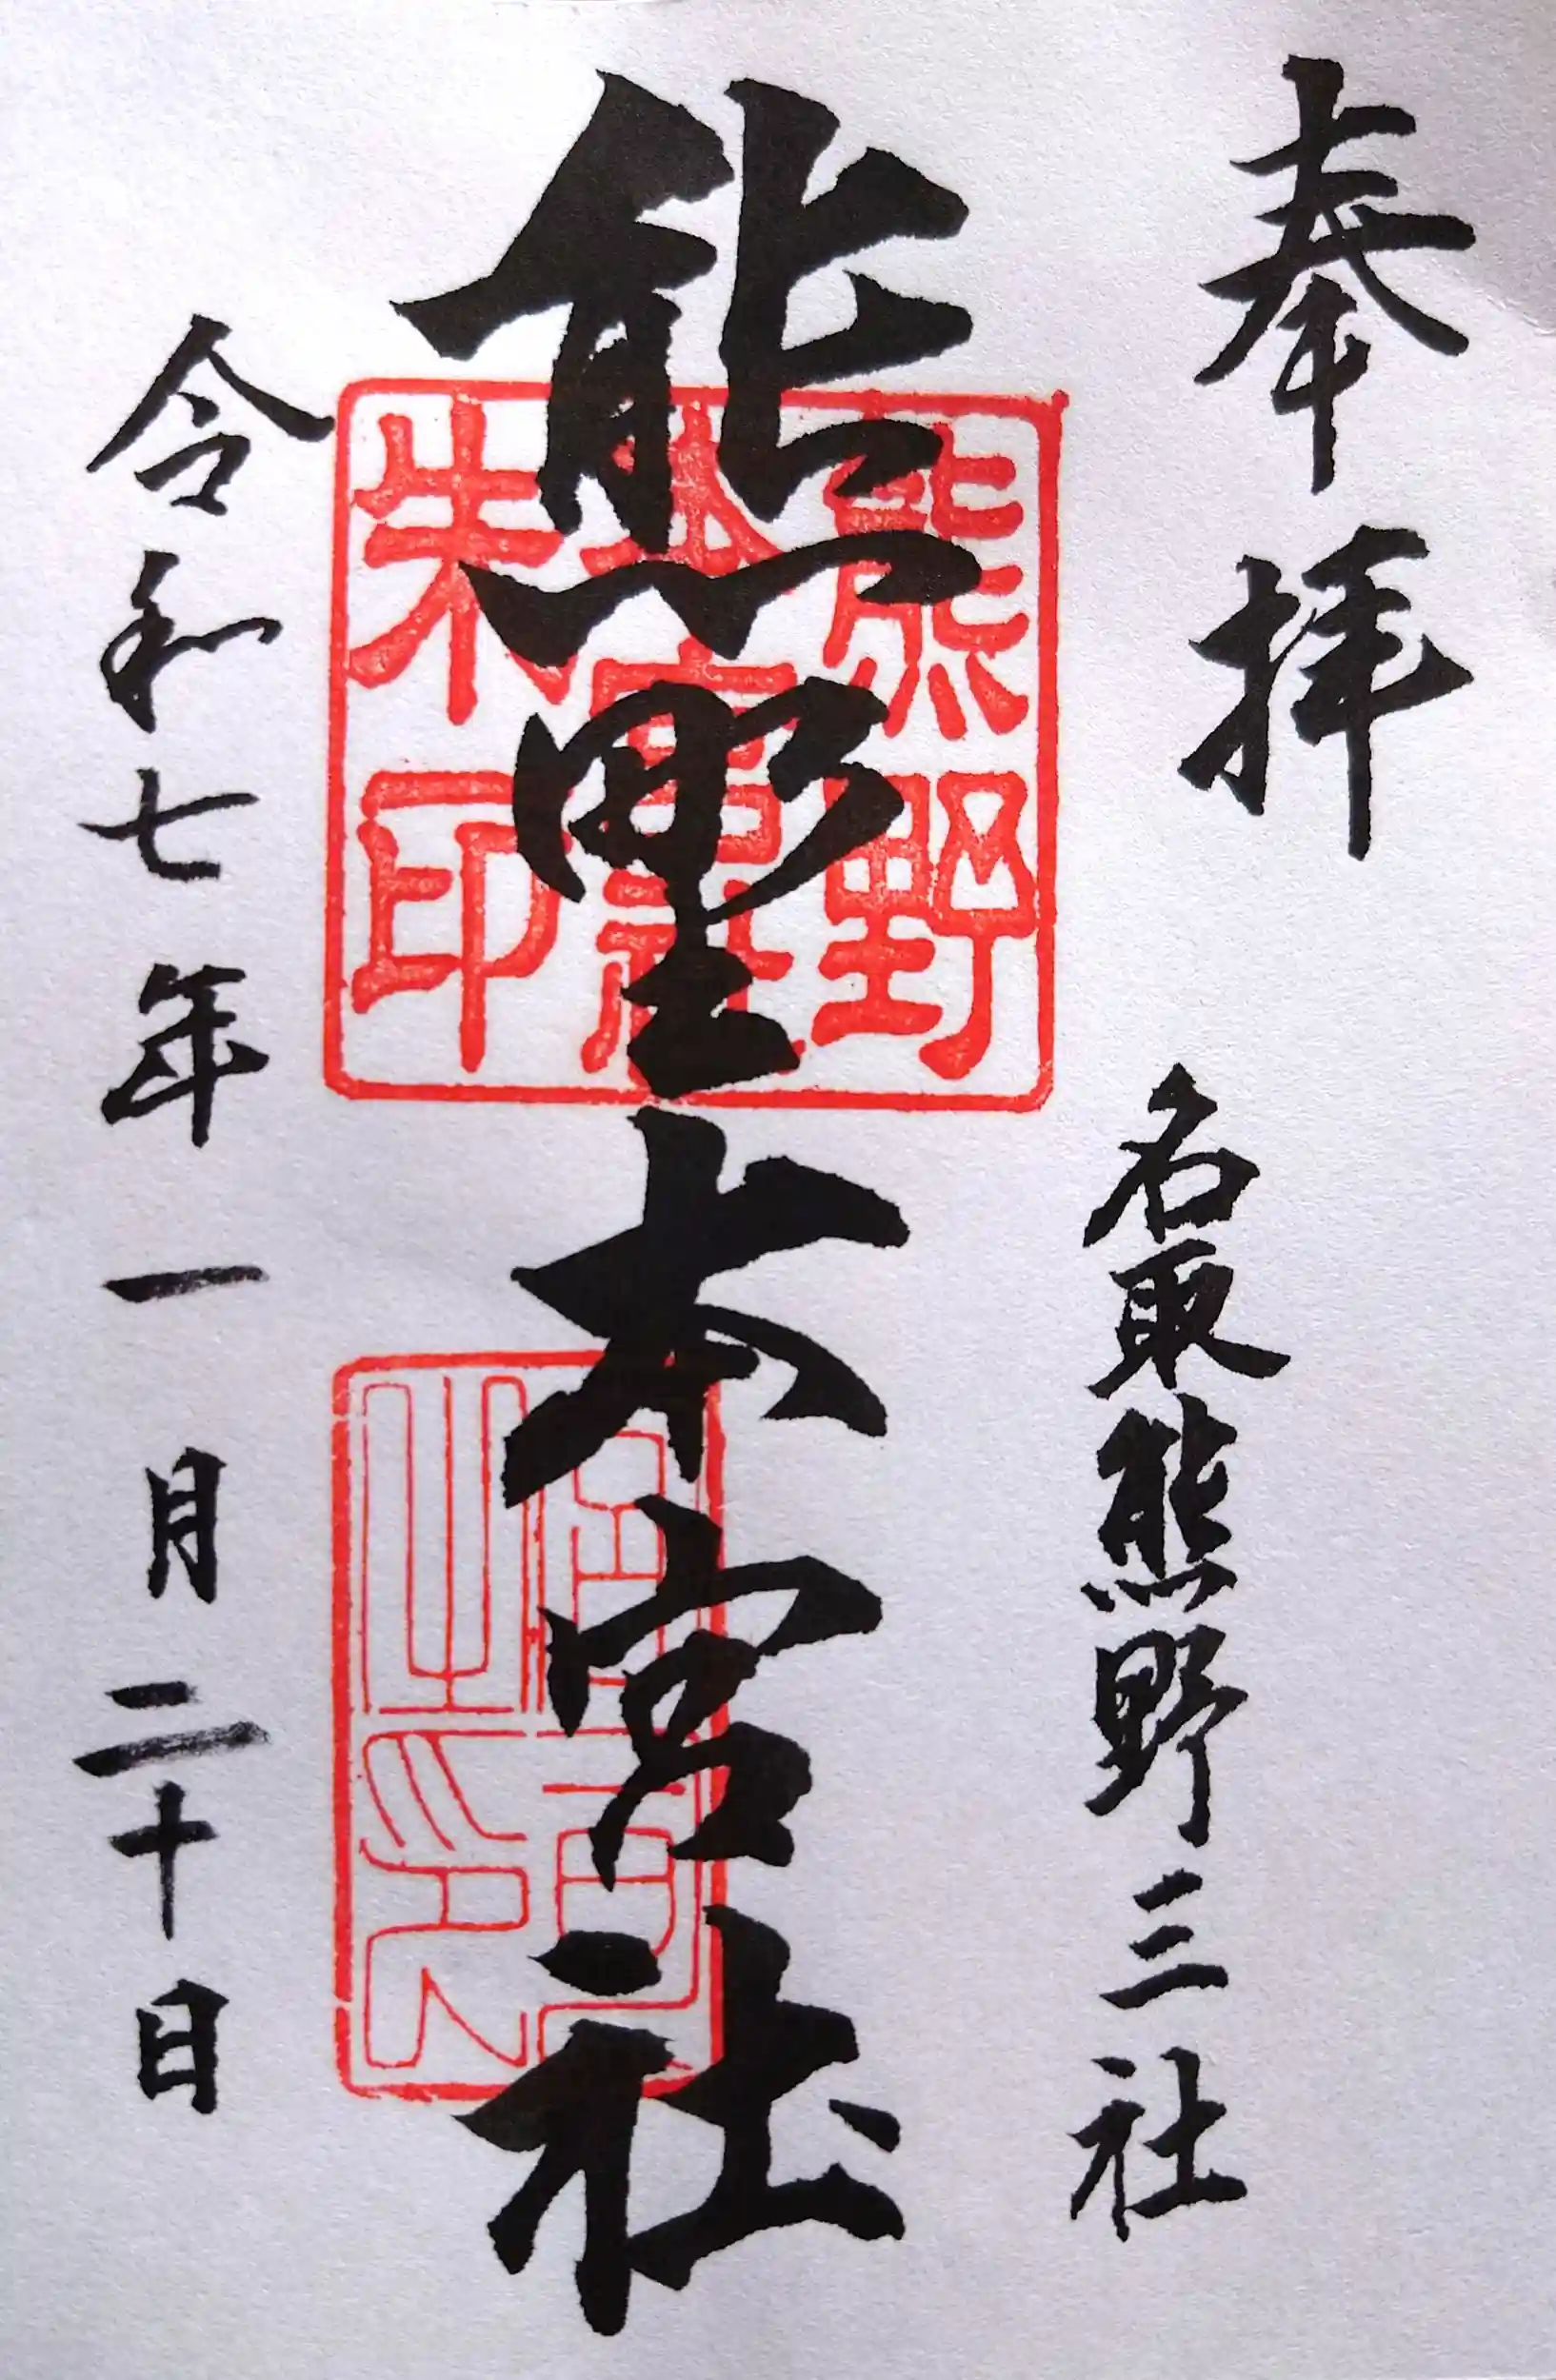 奉拝
名取熊野三社
熊野本宮社
熊野
本宮社
朱印
令和七年一月二十日